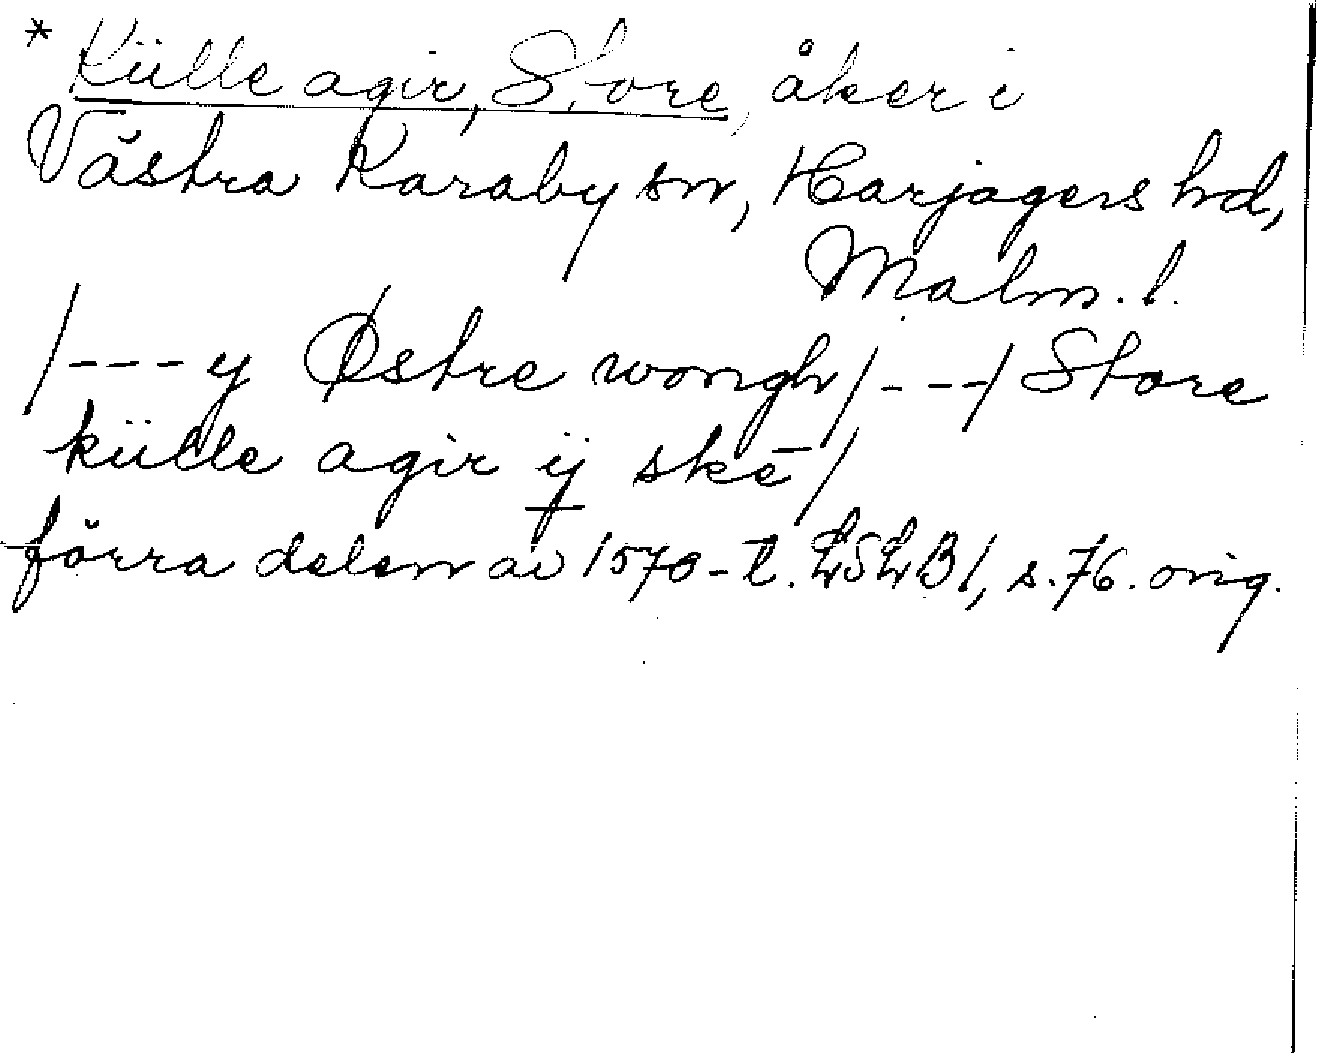 * Külle agir, Store, åker i
Västra Karaby sn, Harjagers hd,
Malm. l.
/--- y Østre wongh/---/ Store
külle agir ij skē/
förra delen av 1570-t. LSLB1, s.76. orig.